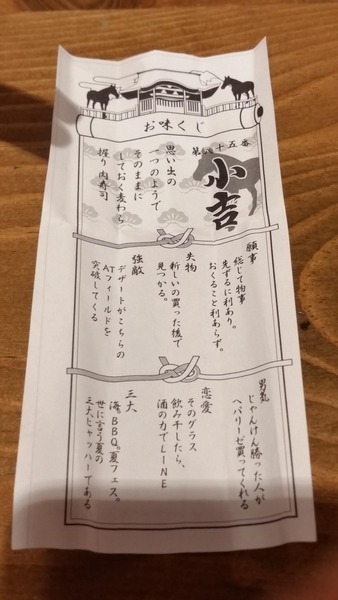 お味くじ
第四十五番
小吉
思い出の
一つのようで
そのままに
しておく麦わら
握り 肉寿司
願事
総じて物事
先ずるに利あり。
おくること利あらず。
失物
新しいの買った後で
見つかる。
強敵
デザートがこちらの
ATフィールドを
突破してくる
男気
じゃんけん勝った人が
ヘパリーゼ買ってくれる
恋愛
そのグラス
飲み干したら、
酒の力でLINE
三大
海。BBQ。夏フェス。
世に言う夏の
三大ヒャッハーである